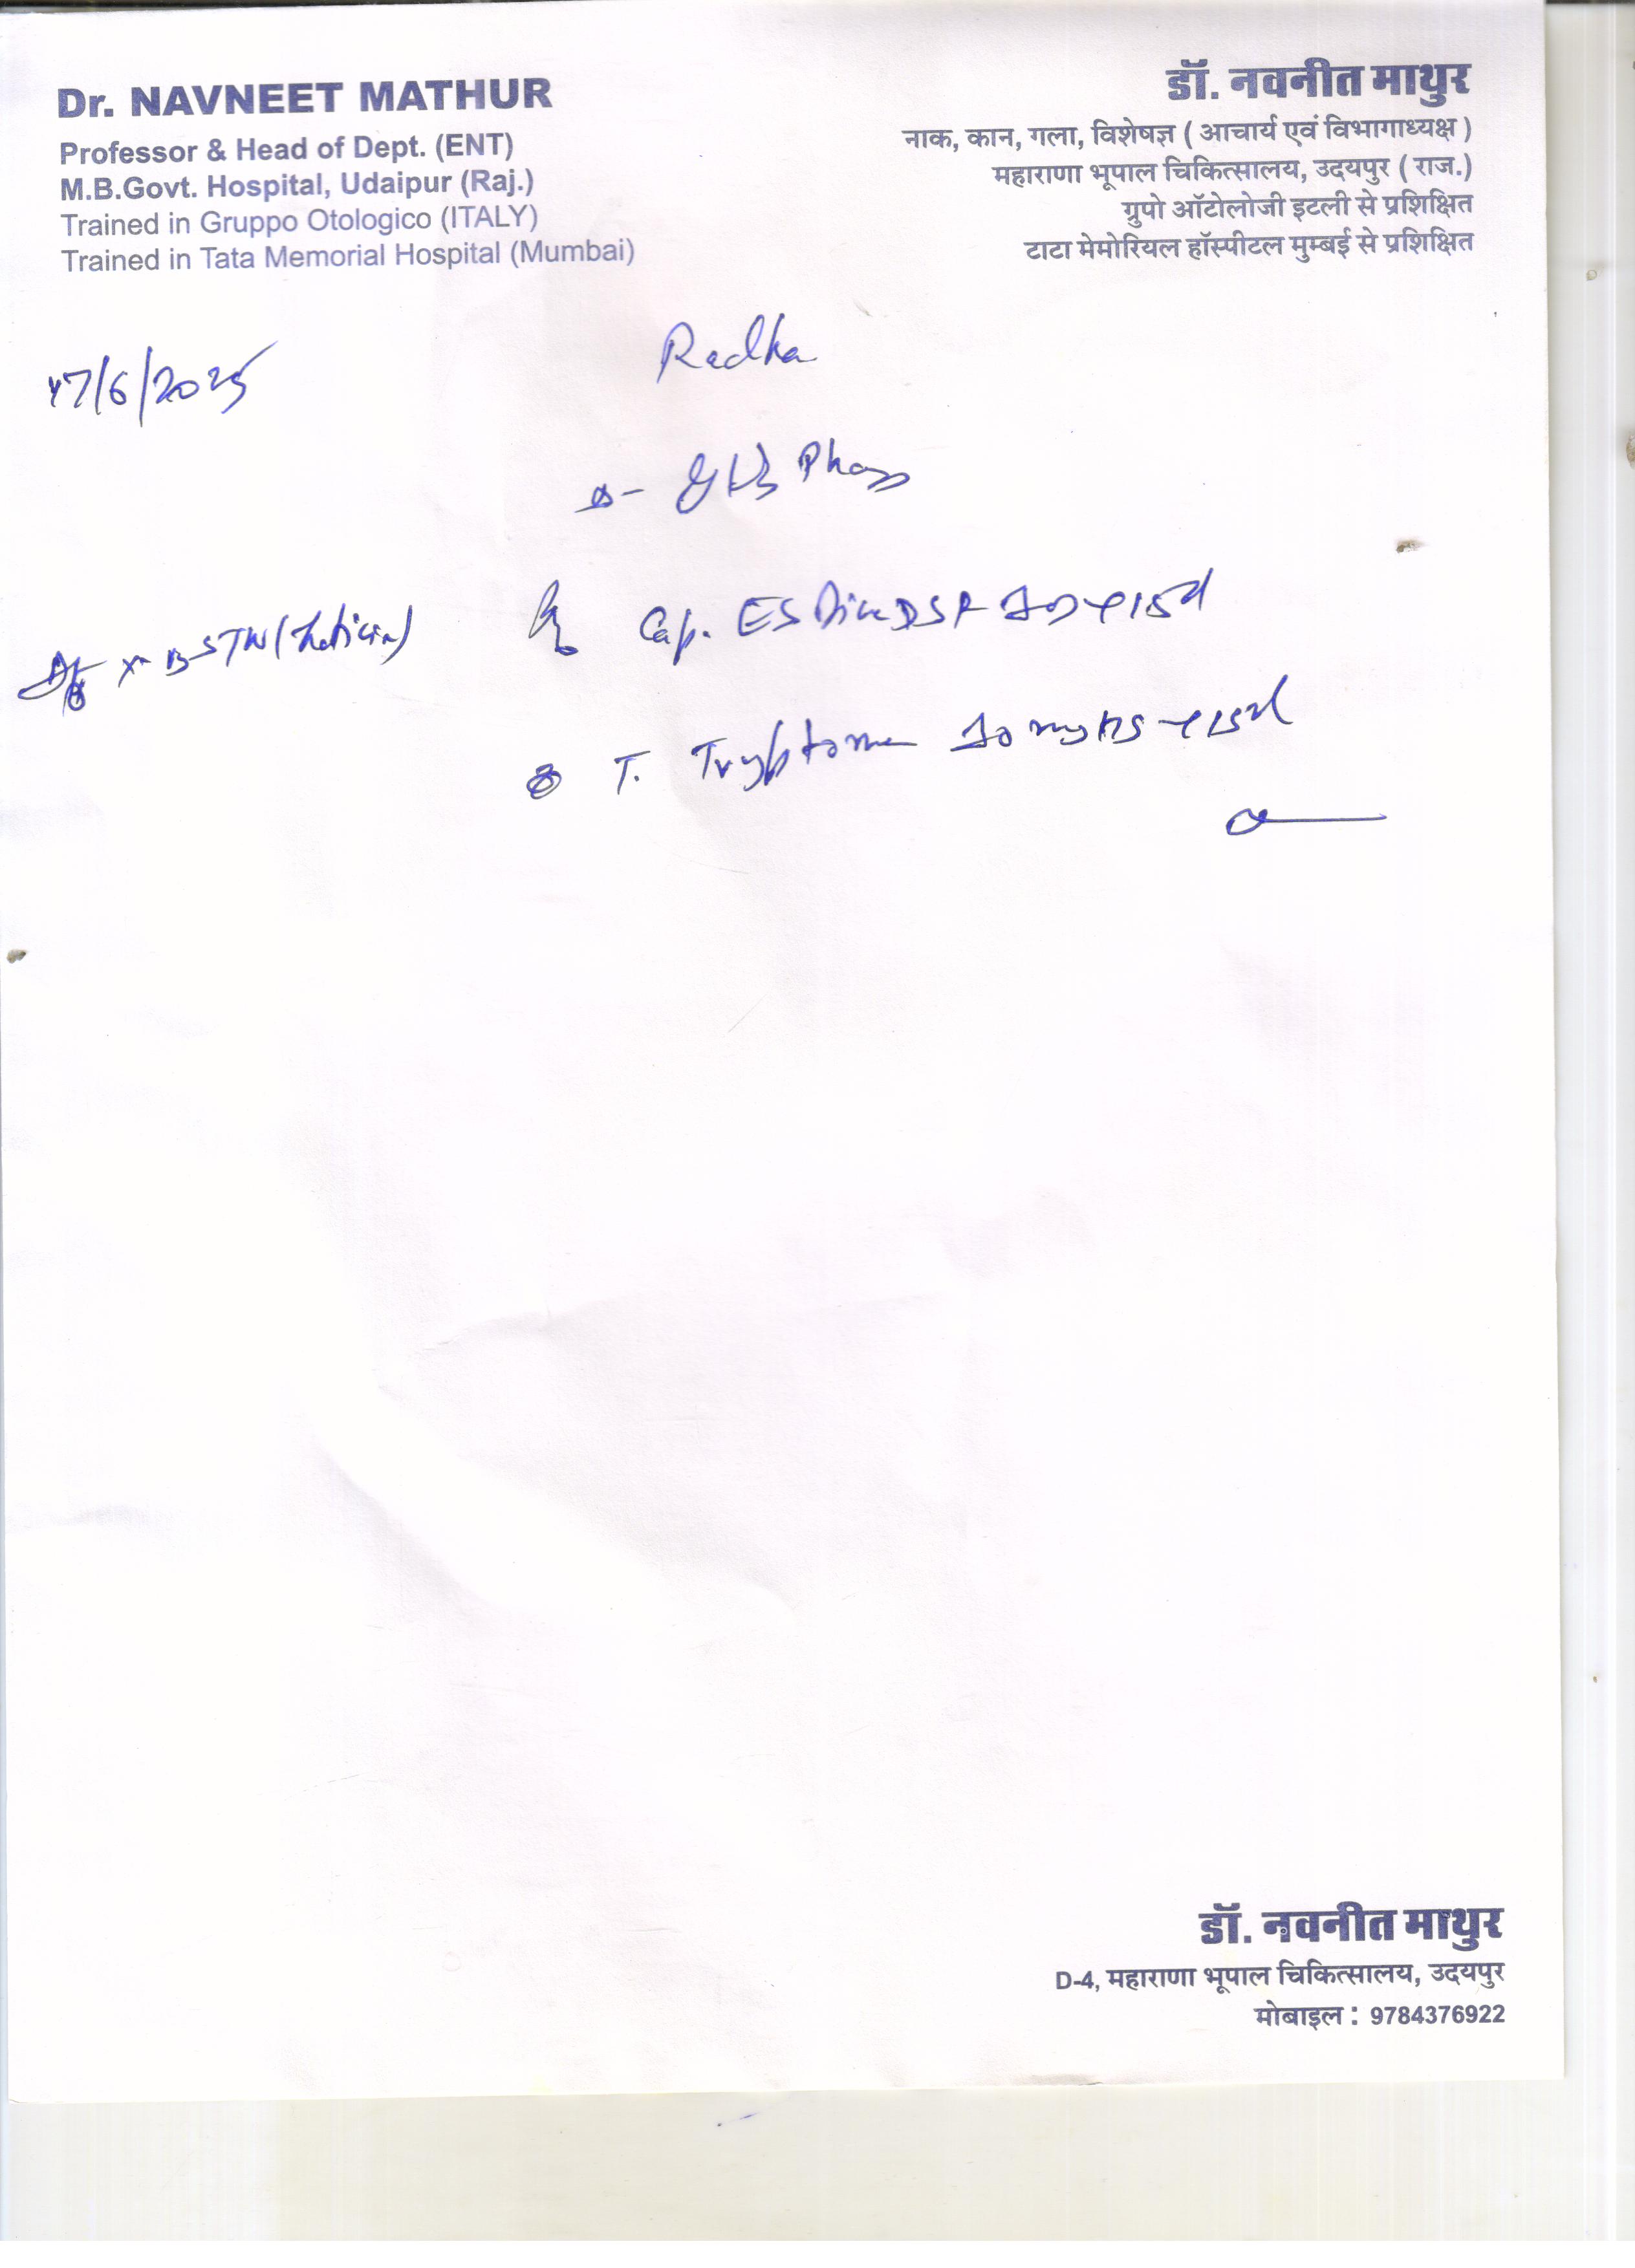 Dr. NAVNEET MATHUR
Professor & Head of Dept. (ENT)
M.B.Govt. Hospital, Udaipur (Raj.)
Trained in Gruppo Otologico (ITALY)
Trained in Tata Memorial Hospital (Mumbai)
डॉ. नवनीत माथुर
नाक, कान, गला, विशेषज्ञ ( आचार्य एवं विभागाध्यक्ष )
महाराणा भूपाल चिकित्सालय, उदयपुर ( राज.)
ग्रुपो ऑटोलोजी इटली से प्रशिक्षित
टाटा मेमोरियल हॉस्पीटल मुम्बई से प्रशिक्षित
Radha
/6/2025
Cap.
T. Tryptomer 10 mg HS
डॉ. नवनीत माथुर
D-4, महाराणा भूपाल चिकित्सालय, उदयपुर
मोबाइल : 9784376922